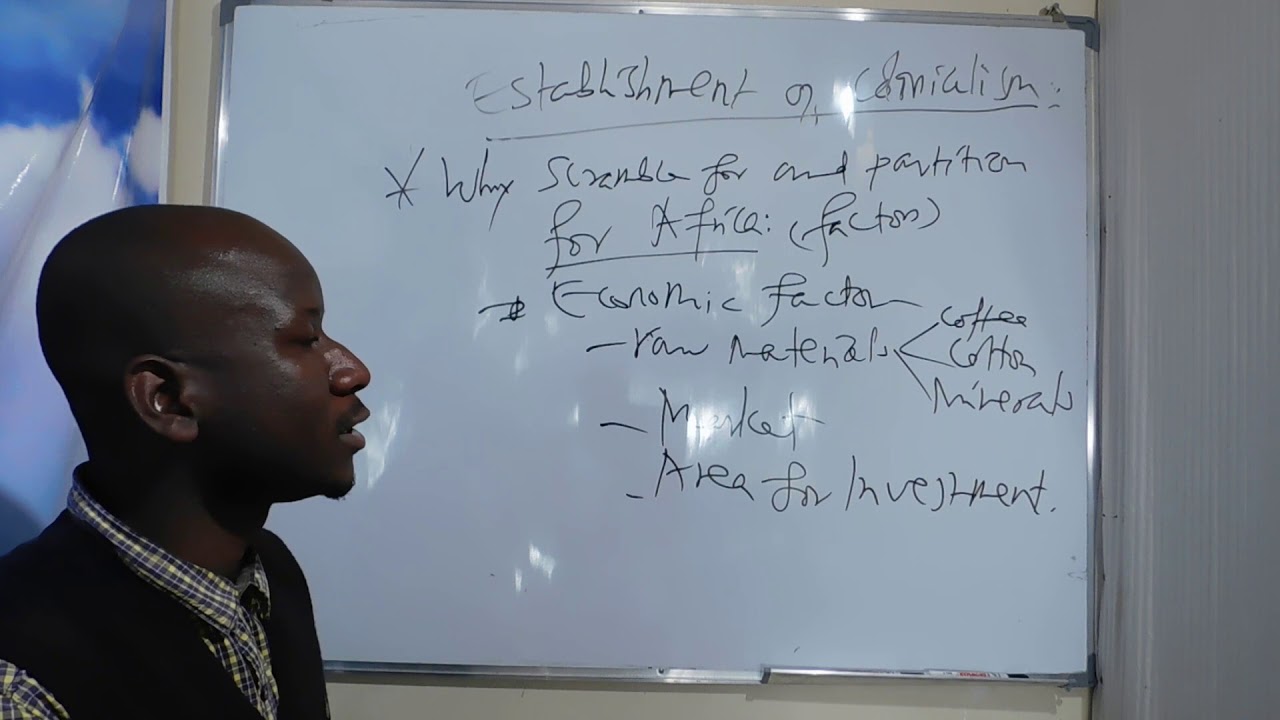 Establishment of Colonialism:
* Why Scramble for and partition
for Africa: (factors)
→ Economic factor
- raw materials < Coffee
Cotton
Minerals
- Market
- Area for Investment.